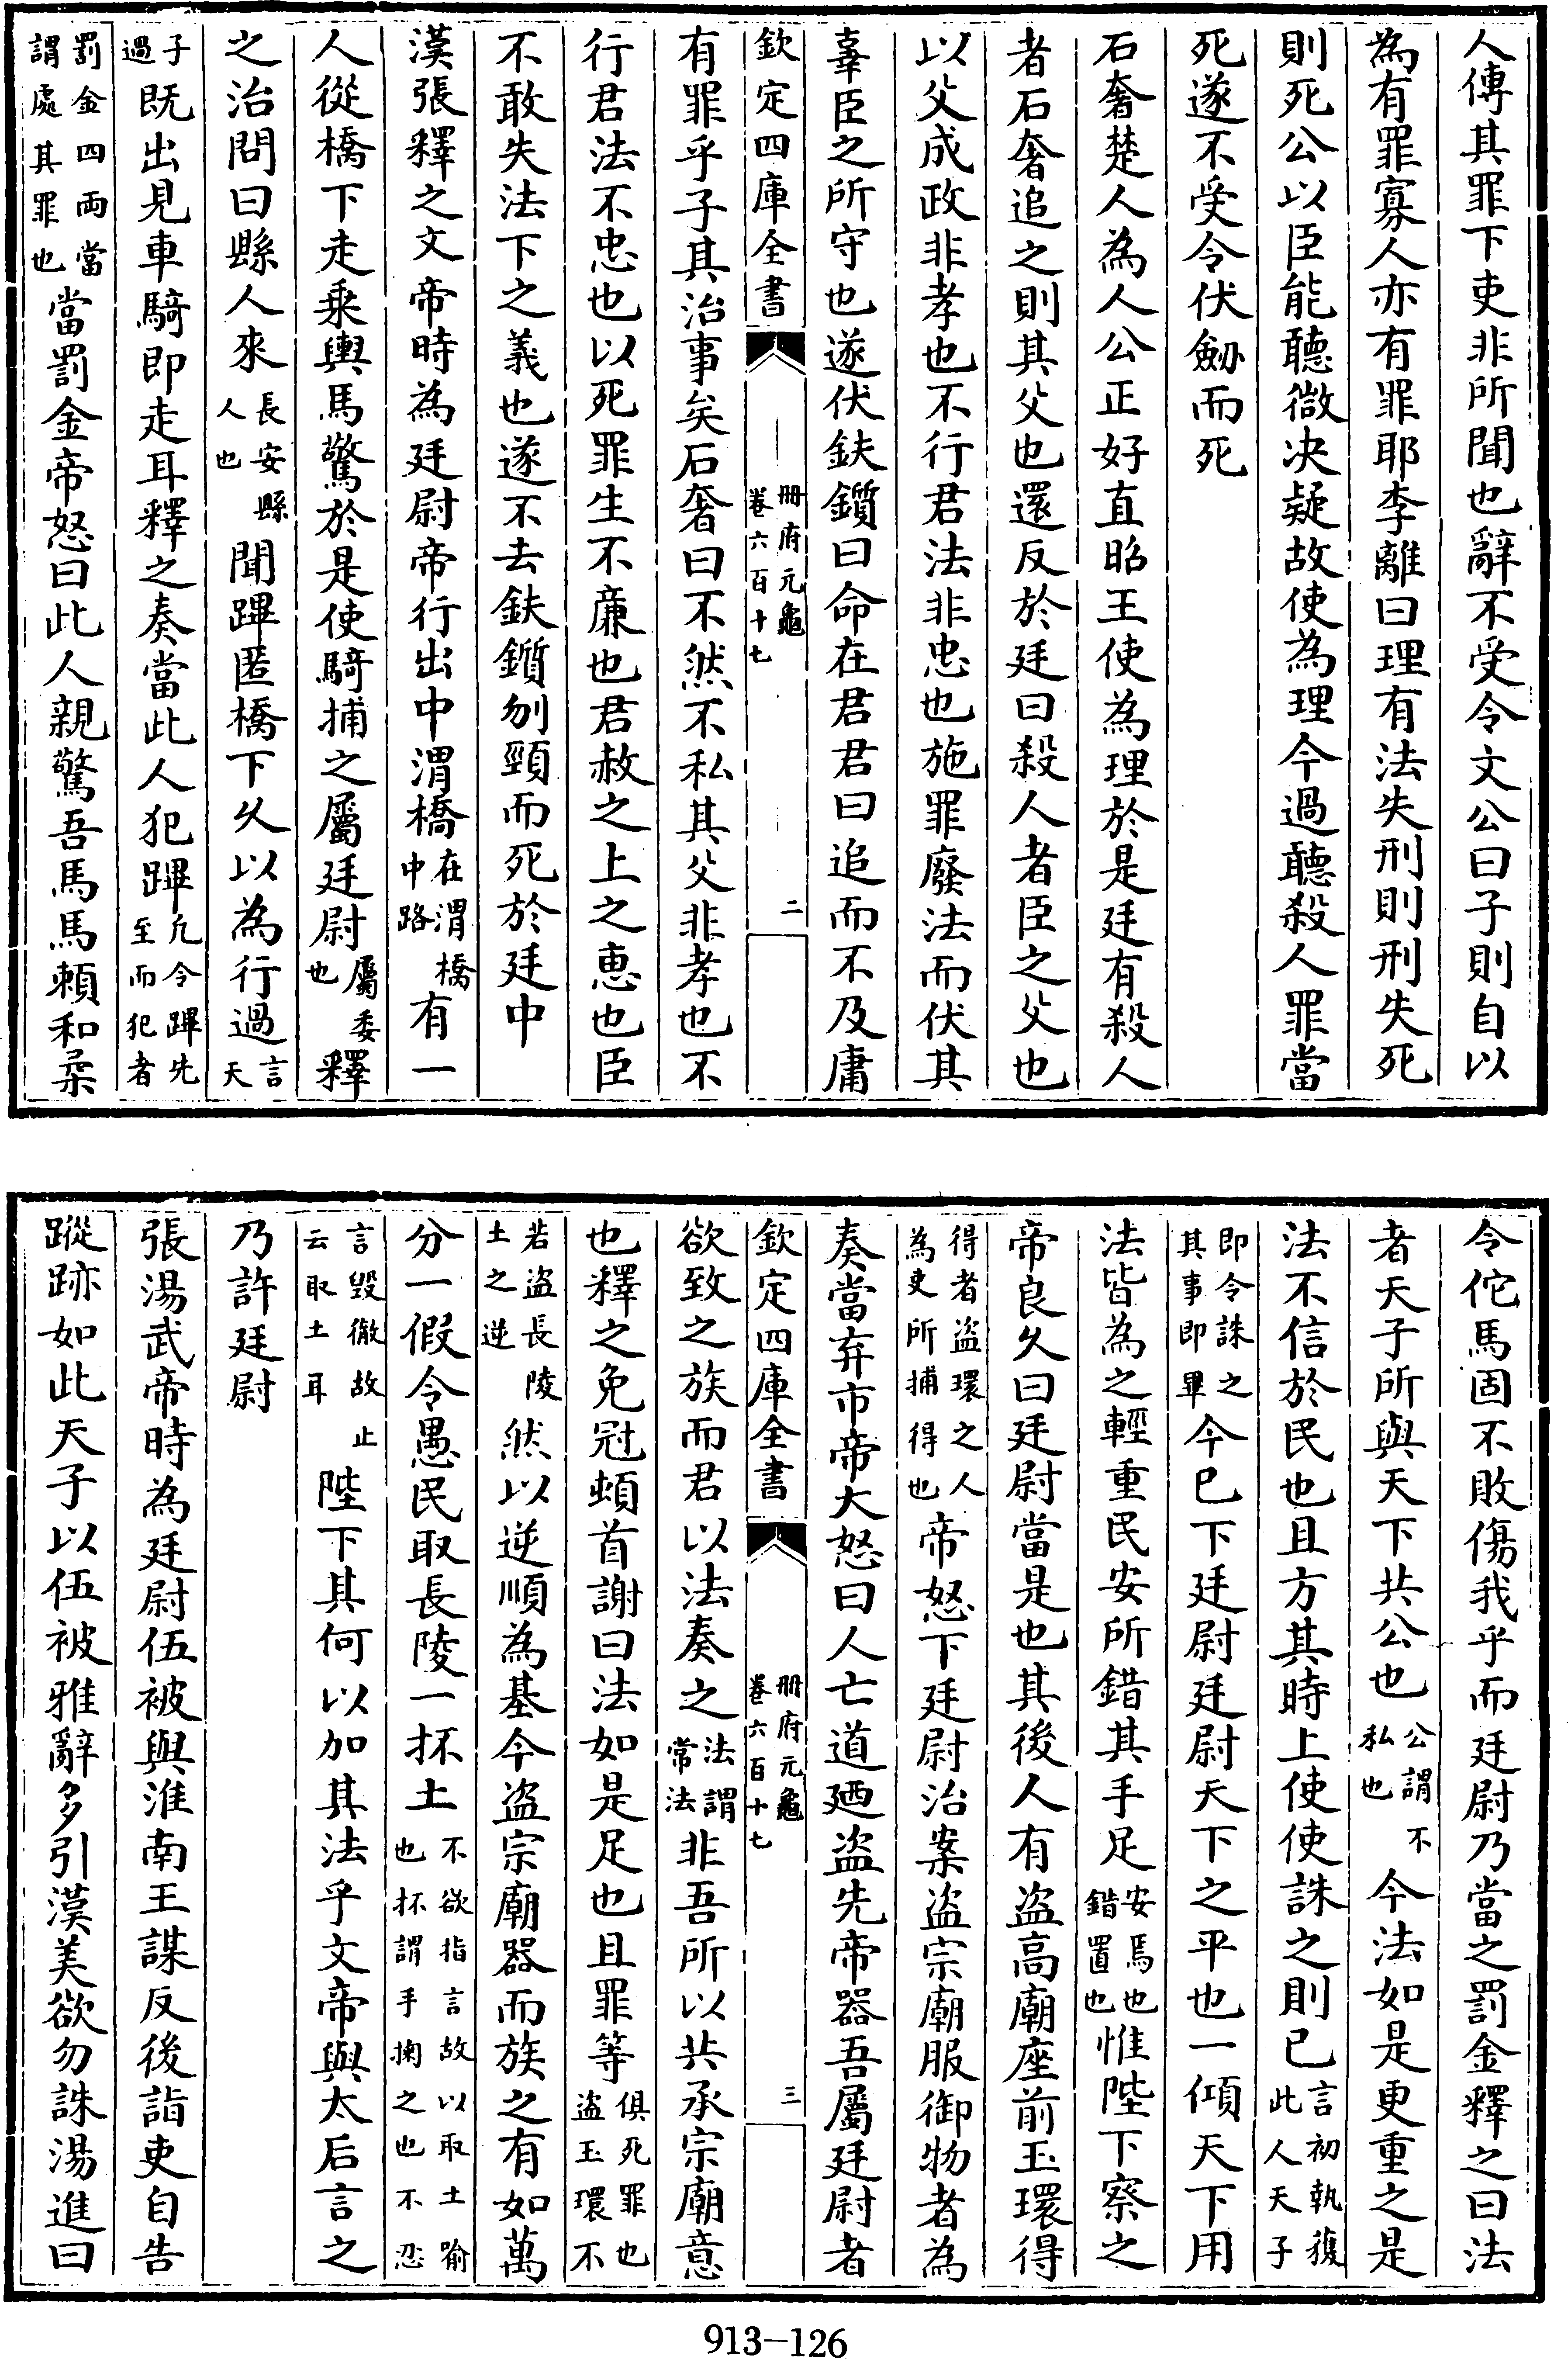 人傳其罪下吏非所聞也辭不受令文公曰子則自以
為有罪寡人亦有罪耶李離曰理有法失刑則刑失死
則死公以臣能聽微决疑故使為理今過聽殺人罪當
死遂不受令伏劒而死
石奢楚人為人公正好直昭王使為理於是廷有殺人
者石奢追之則其父也還反於廷曰殺人者臣之父也
以父成政非孝也不行君法非忠也施罪廢法而伏其
辜臣之所守也遂伏鈇鑕曰命在君君曰追而不及庸
欽定四庫全書 冊府元龜 卷六百十七 二
有罪乎子其治事矣石奢曰不然不私其父非孝也不
行君法不忠也以死罪生不亷也君赦之上之惠也臣
不敢失法下之義也遂不去鈇鑕刎頸而死於廷中
漢張釋之文帝時為廷尉帝行出中渭橋在渭橋中路有一
人從橋下走乘輿馬驚於是使騎捕之屬廷尉屬委也釋
之治問曰縣人來長安縣人也聞蹕匿橋下久以為行過言天
子過既出見車騎即走耳釋之奏當此人犯蹕乙令蹕先至而犯者
罰金四兩當謂處其罪也當罰金帝怒曰此人親驚吾馬馬賴和柔
令佗馬固不敗傷我乎而廷尉乃當之罰金釋之曰法
者天子所與天下共公也公謂不私也今法如是更重之是
法不信於民也且方其時上使使誅之則已言初執獲此人天子
即令誅之其事即畢今已下廷尉廷尉天下之平也一傾天下用
法皆為之輕重民安所錯其手足安焉也錯置也惟陛下察之
帝良久曰廷尉當是也其後人有盗高廟座前玉環得
得者盗環之人為吏所捕得也帝怒下廷尉治案盗宗廟服御物者為
奏當弃市帝大怒曰人亡道廼盗先帝器吾屬廷尉者
欽定四庫全書 冊府元龜 卷六百十七 三
欲致之族而君以法奏之法謂常法非吾所以共承宗廟意
也釋之免冠頓首謝曰法如是足也且罪等俱死罪也盗玉環不
若盗長陵土之逆然以逆順為基今盗宗廟器而族之有如萬
分一假令愚民取長陵一抔土不欲指言故以取土喻也抔謂手掬之也不忍
言毁徹故止云取土耳陛下其何以加其法乎文帝與太后言之
乃許廷尉
張湯武帝時為廷尉伍被與淮南王謀反後詣吏自告
蹤跡如此天子以伍被雅辭多引漢美欲勿誅湯進曰
913-126